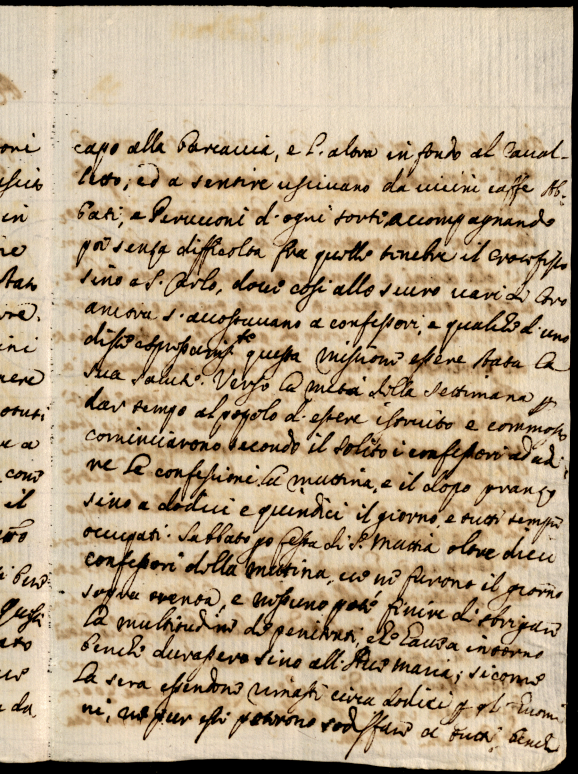 capo alla Barcaccia, e l'altra in fondo al Caval-
letto; ed a sentire uscivano da vicini caffe Ab-
bati, e Peruconi d'ogni sorte accompagnando
poi senza difficoltà fra quelle tenebre il Crocifisso
sino a S. Carlo, dove così allo scuro varj di loro
ancora s'accostavano a confessori, e qualche d'uno
disse espressam.te questa missione essere stata la
sua salute. Verso la metà della settimana p
dar tempo al popolo d'essere istruito e commosso
cominciarono secondo il solito i confessori ad udi-
re le confessioni la mattina, e il dopo pranzo
sino a dodici e quindici il giorno, e tutti sempre
occupati. Sabbato po festa di S. Mattia oltre dieci
confessori della mattina, ve ne furono il giorno
sopra trenta, e nessuno poté finire di sbrigare
la moltitudine de penitenti, che l'avea intorno
benche durassero sino all'Ave Maria; siccome
la sera essendone rimasti circa dodici p gl'Uomi
ni, ne pur essi poterono sodisfare a tutti, benche
oni
in
ne
stato
ini
nere
e a
come
il
Questi
ato
da